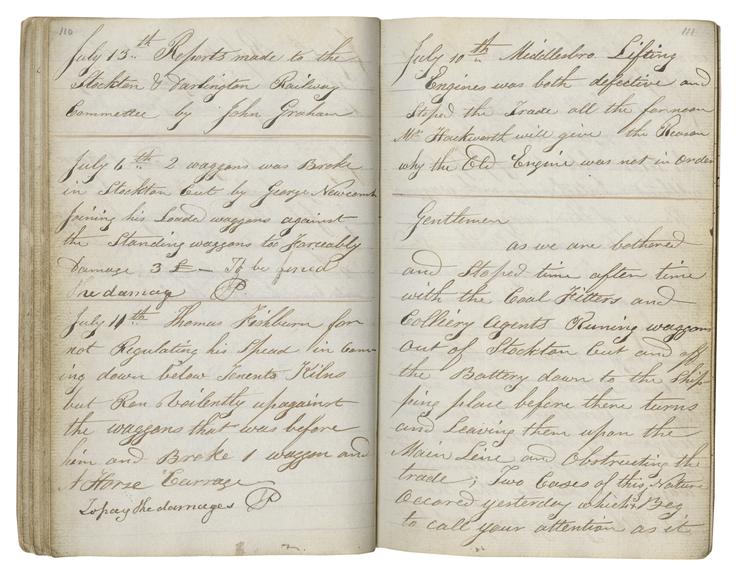 110
July 13th Reports made to the
Stockton & Darlington Railway
Committee by John Graham
July 6th 2 waggons was Broke
in Stockton Cut by George Newcomb
joining his Loaded waggons against
the Standing waggons too Forceably
Damage 3 £ — To be fined
the damage P
July 11th Thomas Fishburn for
not Regulating his Spead in Com-
ing down below Kilns
but Ran Voilently upagainst
the waggons that was before
him and Broke 1 waggon and
A Horse Carrage
To pay the damages P
111
July 10th Middlesbro Lifting
Engines was both defective and
Stoped the Trade all the forenoon
Mr Hackworth will give the Reason
why the Old Engine was not in Order
Gentlemen
as we are bothered
and Stoped time after time
with the Coal Fitters and
Colliery Agents Runing waggons
out of Stockton Cut and off
the Battery down to the Ship
ping place before there turns
and Leaving them upon the
Main Line and Obstructing the
trade; Two Cases of this Nature
Occored yesterday which I Beg
to call your attention as it